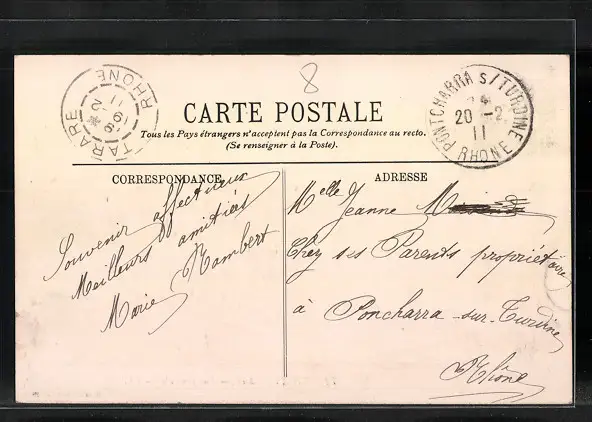 8
CARTE POSTALE
Tous les Pays étrangers n'acceptent pas la Correspondance au recto.
(Se renseigner à la Poste).
TARARE
RHONE
PONTCHARRA S/TURDINE
20 -2
11
RHONE
CORRESPONDANCE
Souvenir affectueux
Meilleurs amitiés
Marie Rambert
ADRESSE
Melle Jeanne
Chez ses Parents propriétaire
à Poncharra-sur-Turdine
Rhône